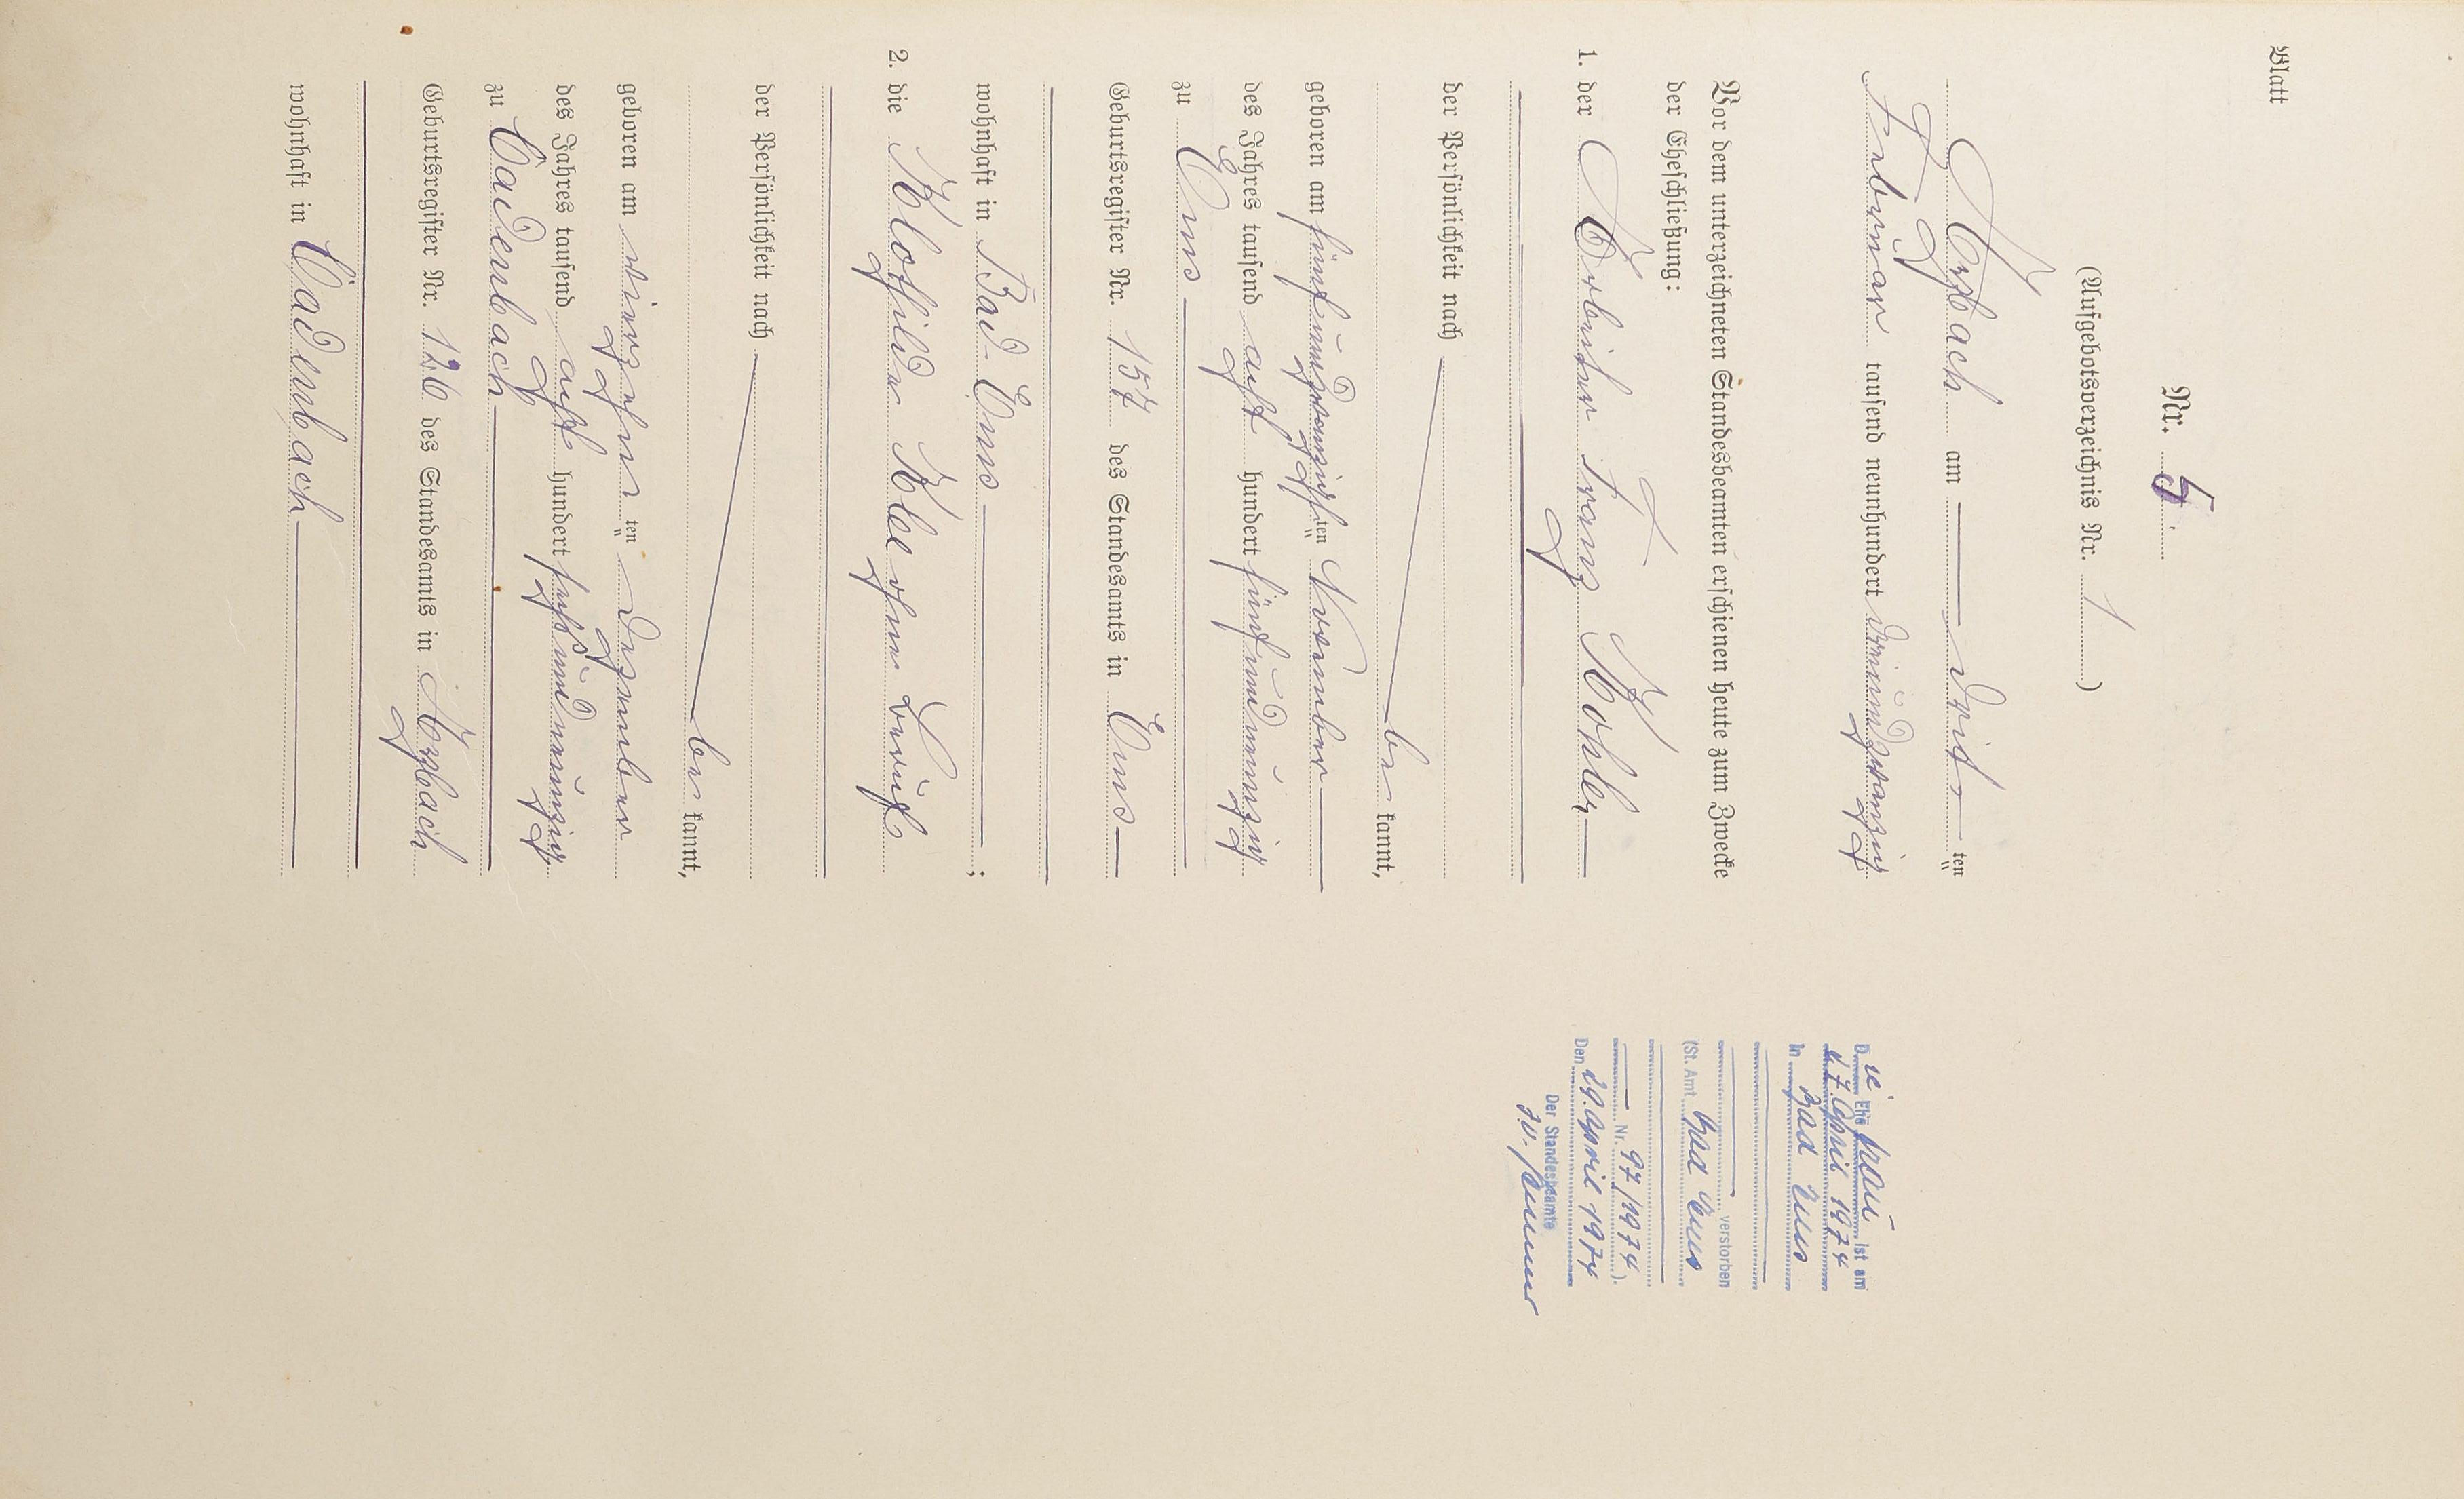 Blatt
Nr. 5.
(Aufgebotsverzeichnis Nr. 1)
Arzbach am dritten
Februar tausend neunhundert dreiundzwanzig
Vor dem unterzeichneten Standesbeamten erschienen heute zum Zwecke
der Eheschließung:
1. der Arbeiter Franz Kohler
der Persönlichkeit nach
be kannt,
geboren am fünfundzwanzigsten November
des Jahres tausend acht hundert fünfundneunzig
zu Ems
Geburtsregister Nr. 157 des Standesamts in Ems
wohnhaft in Bad-Ems ;
2. die Klothilde Klee ohne Beruf
der Persönlichkeit nach
be kannt,
geboren am vierzehn ten Dezember
des Jahres tausend acht hundert sechsundneunzig
zu Cadenbach
Geburtsregister Nr. 126 des Standesamts in Arzbach
wohnhaft in Cadenbach
Die Ehefrau ist am
17. April 1974
in Bad Ems
verstorben
(St. Amt Bad Ems
Nr. 97/1974).
Den 29. April 1974
Der Standesbeamte